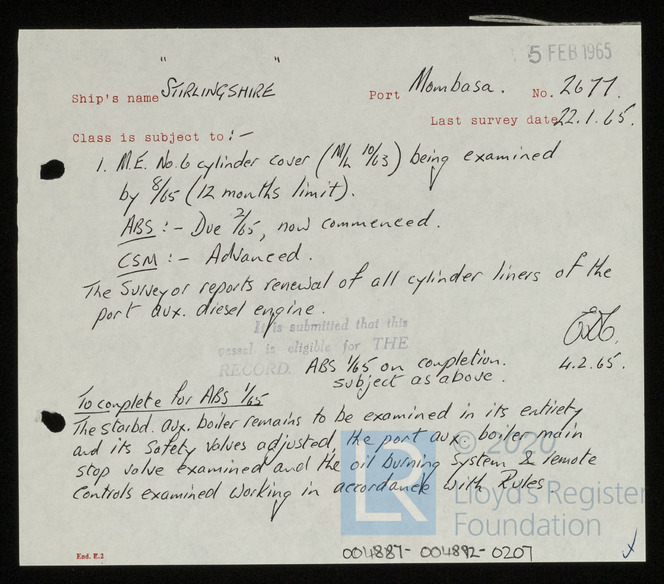 5 FEB 1965
Ship's name "STIRLINGSHIRE" Port Mombasa. No. 2677.
Last survey date 22.1.65.
Class is subject to:-
1. M.E. No.6 cylinder cover (M/L 10/63) being examined
by 8/65 (12 months limit).
ABS :- Due 2/65, now commenced.
CSM :- Advanced.
The Surveyor reports renewal of all cylinder liners of the
port aux. diesel engine.
It is submitted that this
vessel is eligible for THE
RECORD. ABS 1/65 on completion.
subject as above.
4.2.65.
To complete for ABS 1/65
The starbd. aux. boiler remains to be examined in its entirety
and its safety valves adjusted, the port aux. boiler main
stop valve examined and the oil burning system & remote
controls examined working in accordance with Rules
© 2020
LR
Lloyd's Register
Foundation
End. E.2
004887-004892-0207